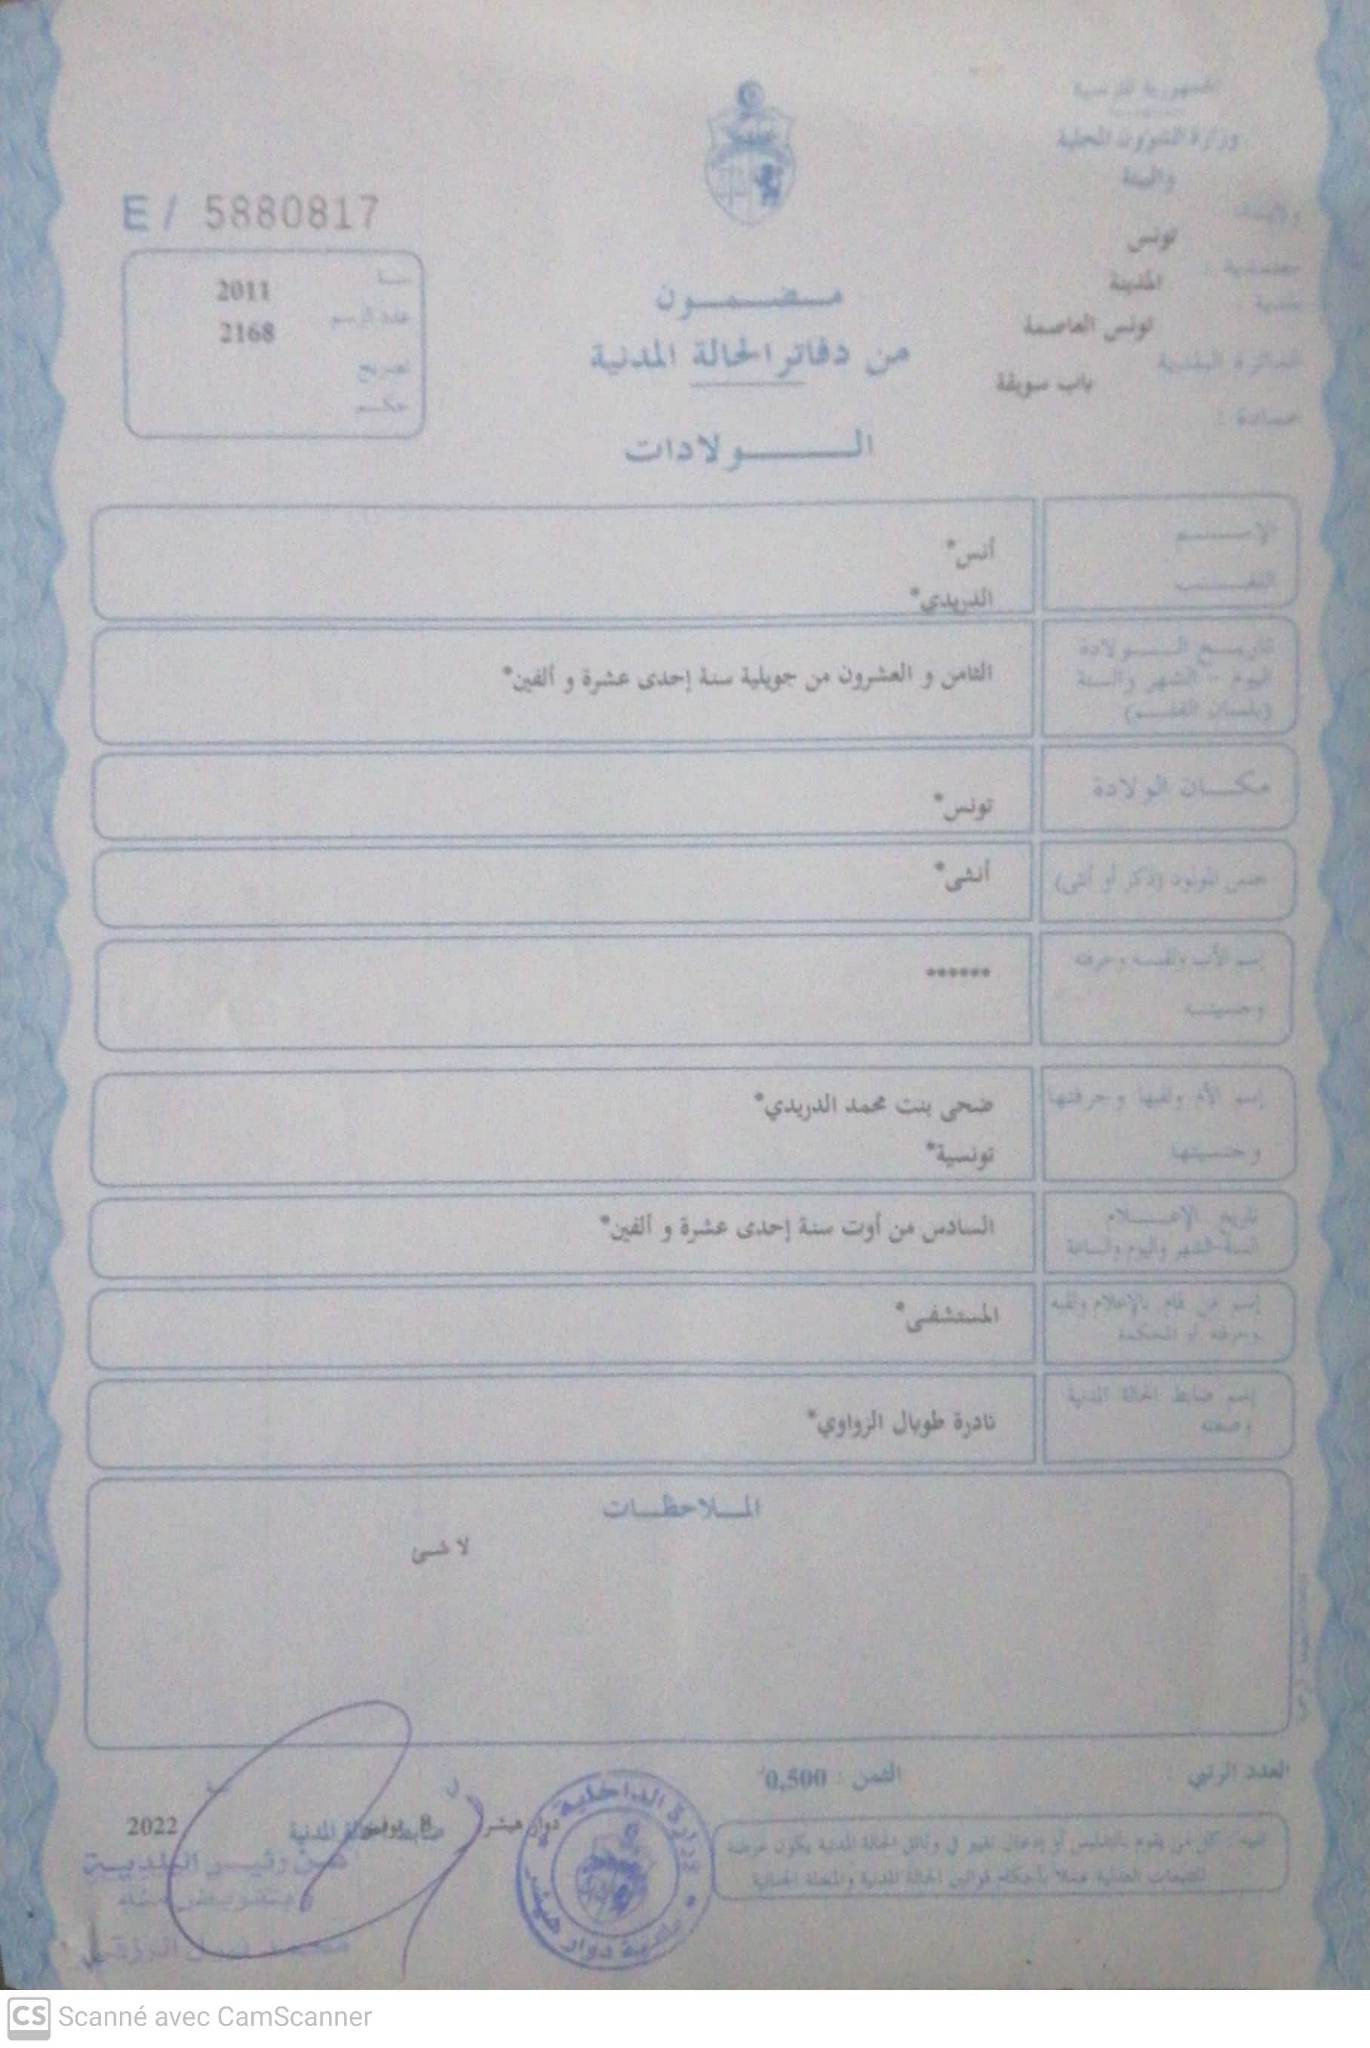 الجمهورية التونسية
وزارة الشؤون المحلية
والبيئة
ولاية:
تونس
معتمدية :
المدينة
بلدية :
تونس العاصمة
الدائرة البلدية
باب سويقة
عمادة :
E / 5880817
سنة
2011
عدد الرسم
2168
تصريح
حكم
مضمون
من دفاتر الحالة المدنية
الولادات
الإسم
أنس*
اللقب
الدريدي*
تاريخ الولادة
اليوم - الشهر والسنة
(بلسان القلم)
الثامن و العشرون من جويلية سنة إحدى عشرة و ألفين*
مكان الولادة
تونس*
جنس المولود (ذكر أو أنثى)
أنثى*
إسم الأب ولقبه وحرفته
وجنسيته
******
إسم الأم ولقبها وحرفتها
وجنسيتها
ضحى بنت محمد الدريدي*
تونسية*
تاريخ الإعلام
السنة-الشهر واليوم والساعة
السادس من أوت سنة إحدى عشرة و ألفين*
إسم من قام بالإعلام ولقبه
وحرفته أو المحكمة
المستشفى*
إسم ضابط الحالة المدنية
وصفته
نادرة طوبال الزواوي*
الملاحظات
لا شئ
العدد الرتبي :
الثمن : 0,500
تنبيه : كل من يقوم بالتدليس أو إدخال تغيير في وثائق الحالة المدنية يكون عرضة
للتتبعات العدلية عملا بأحكام قوانين الحالة المدنية والمجلة الجنائية
دوار هيشر
8
2022
ضابط الحالة المدنية
عن رئيس البلدية
وزارة الداخلية
بلدية دوار هيشر
CS Scanné avec CamScanner